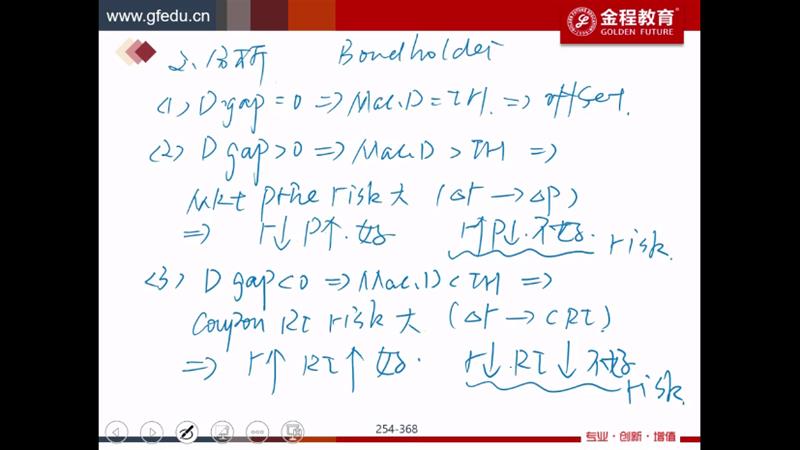 www.gfedu.cn
金程教育
GOLDEN FUTURE
2.分析 Bondholder
(1) D.gap=0 ⇒ Mac.D=IH. ⇒ offset.
(2) D gap>0 ⇒ Mac.D>IH ⇒
Mkt price risk大 (Δr→ΔP)
⇒ r↓ P↑.好 r↑P↓.不好. risk.
(3) D gap<0 ⇒ Mac.D<IH ⇒
Coupon RI risk大 (Δr→CRI)
⇒ r↑ RI↑好. r↓.RI↓不好 risk.
254-368
专业·创新·增值